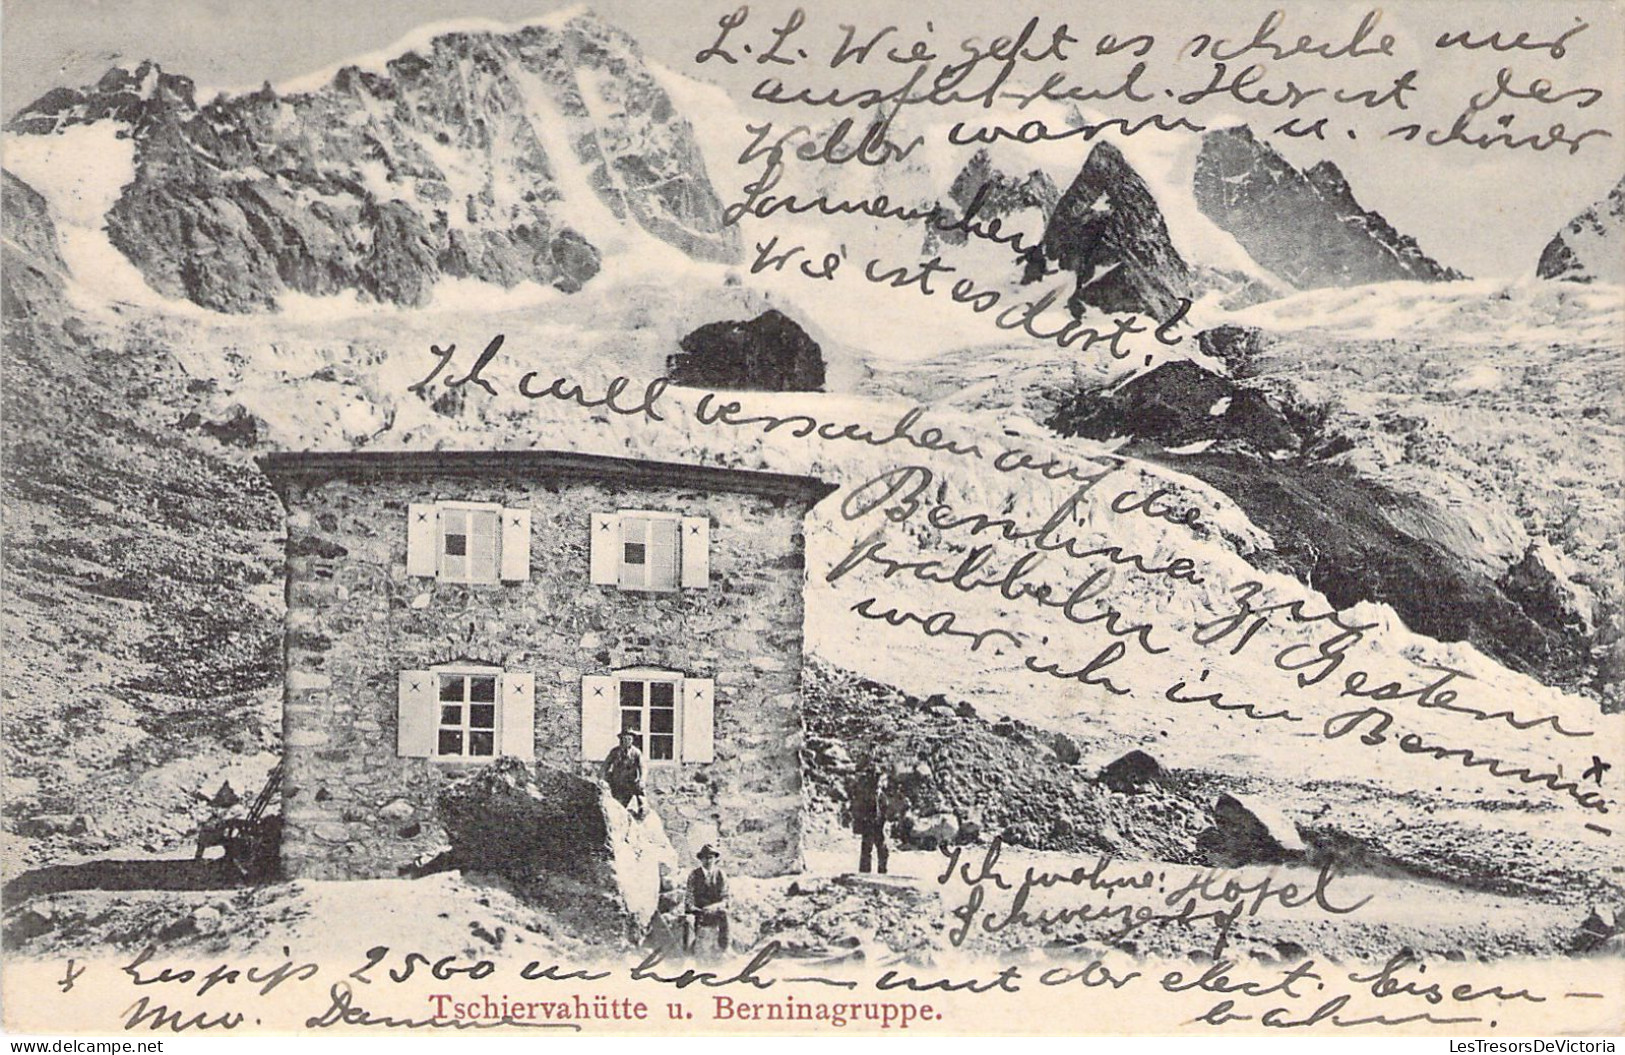 L. L. Wie geht es schreibe mir
ausführlich. Hier ist das
Wetter warm u. schöner
Sonnenschein
Wie ist es dort?
Ich will versuchen auf die
Bernina zu
krabbeln Gestern
war ich im Bernina-
Ich wohne: Hotel
Schweizerhof
x hospiz 2500 m hoch – mit der elect. Eisen-
bahn.
Tschiervahütte u. Berninagruppe.
LesTresorsDeVictoria